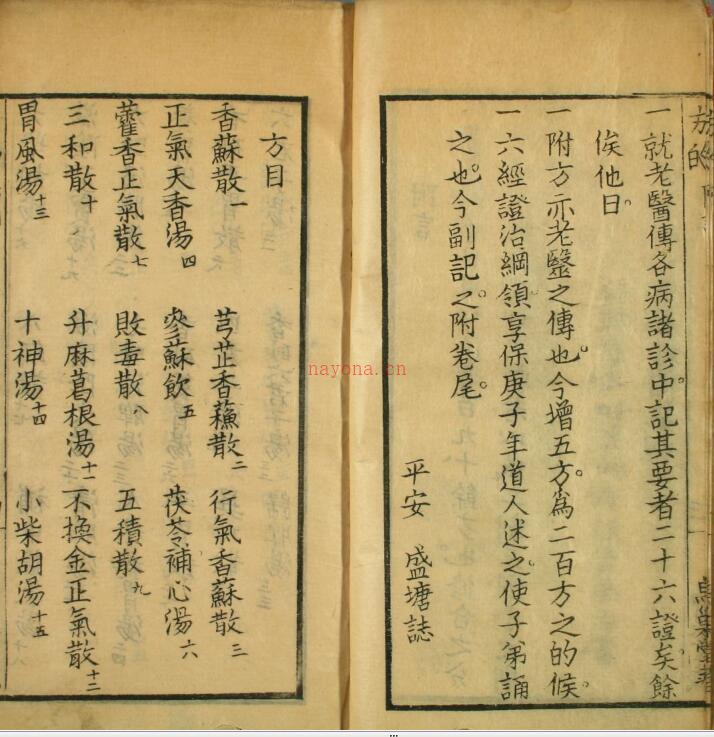 一就老醫傳各病諸診中。記其要者二十六證矣。餘
俟他日。
一附方亦老醫之傳也。今增五方。爲二百方之的候。
一六經證治綱領享保庚子年道人述之。使子弟誦
之也。今副記之。附卷尾。
平安 盛塘誌
方目
香蘇散一 芎芷香蘓散二 行氣香蘇散三
正氣天香湯四 參蘇飲五 茯苓補心湯六
藿香正氣散七 敗毒散八 五積散九
三和散十 升麻葛根湯十一 不換金正氣散十二
胃風湯十三 十神湯十四 小柴胡湯十五
nayona.cn